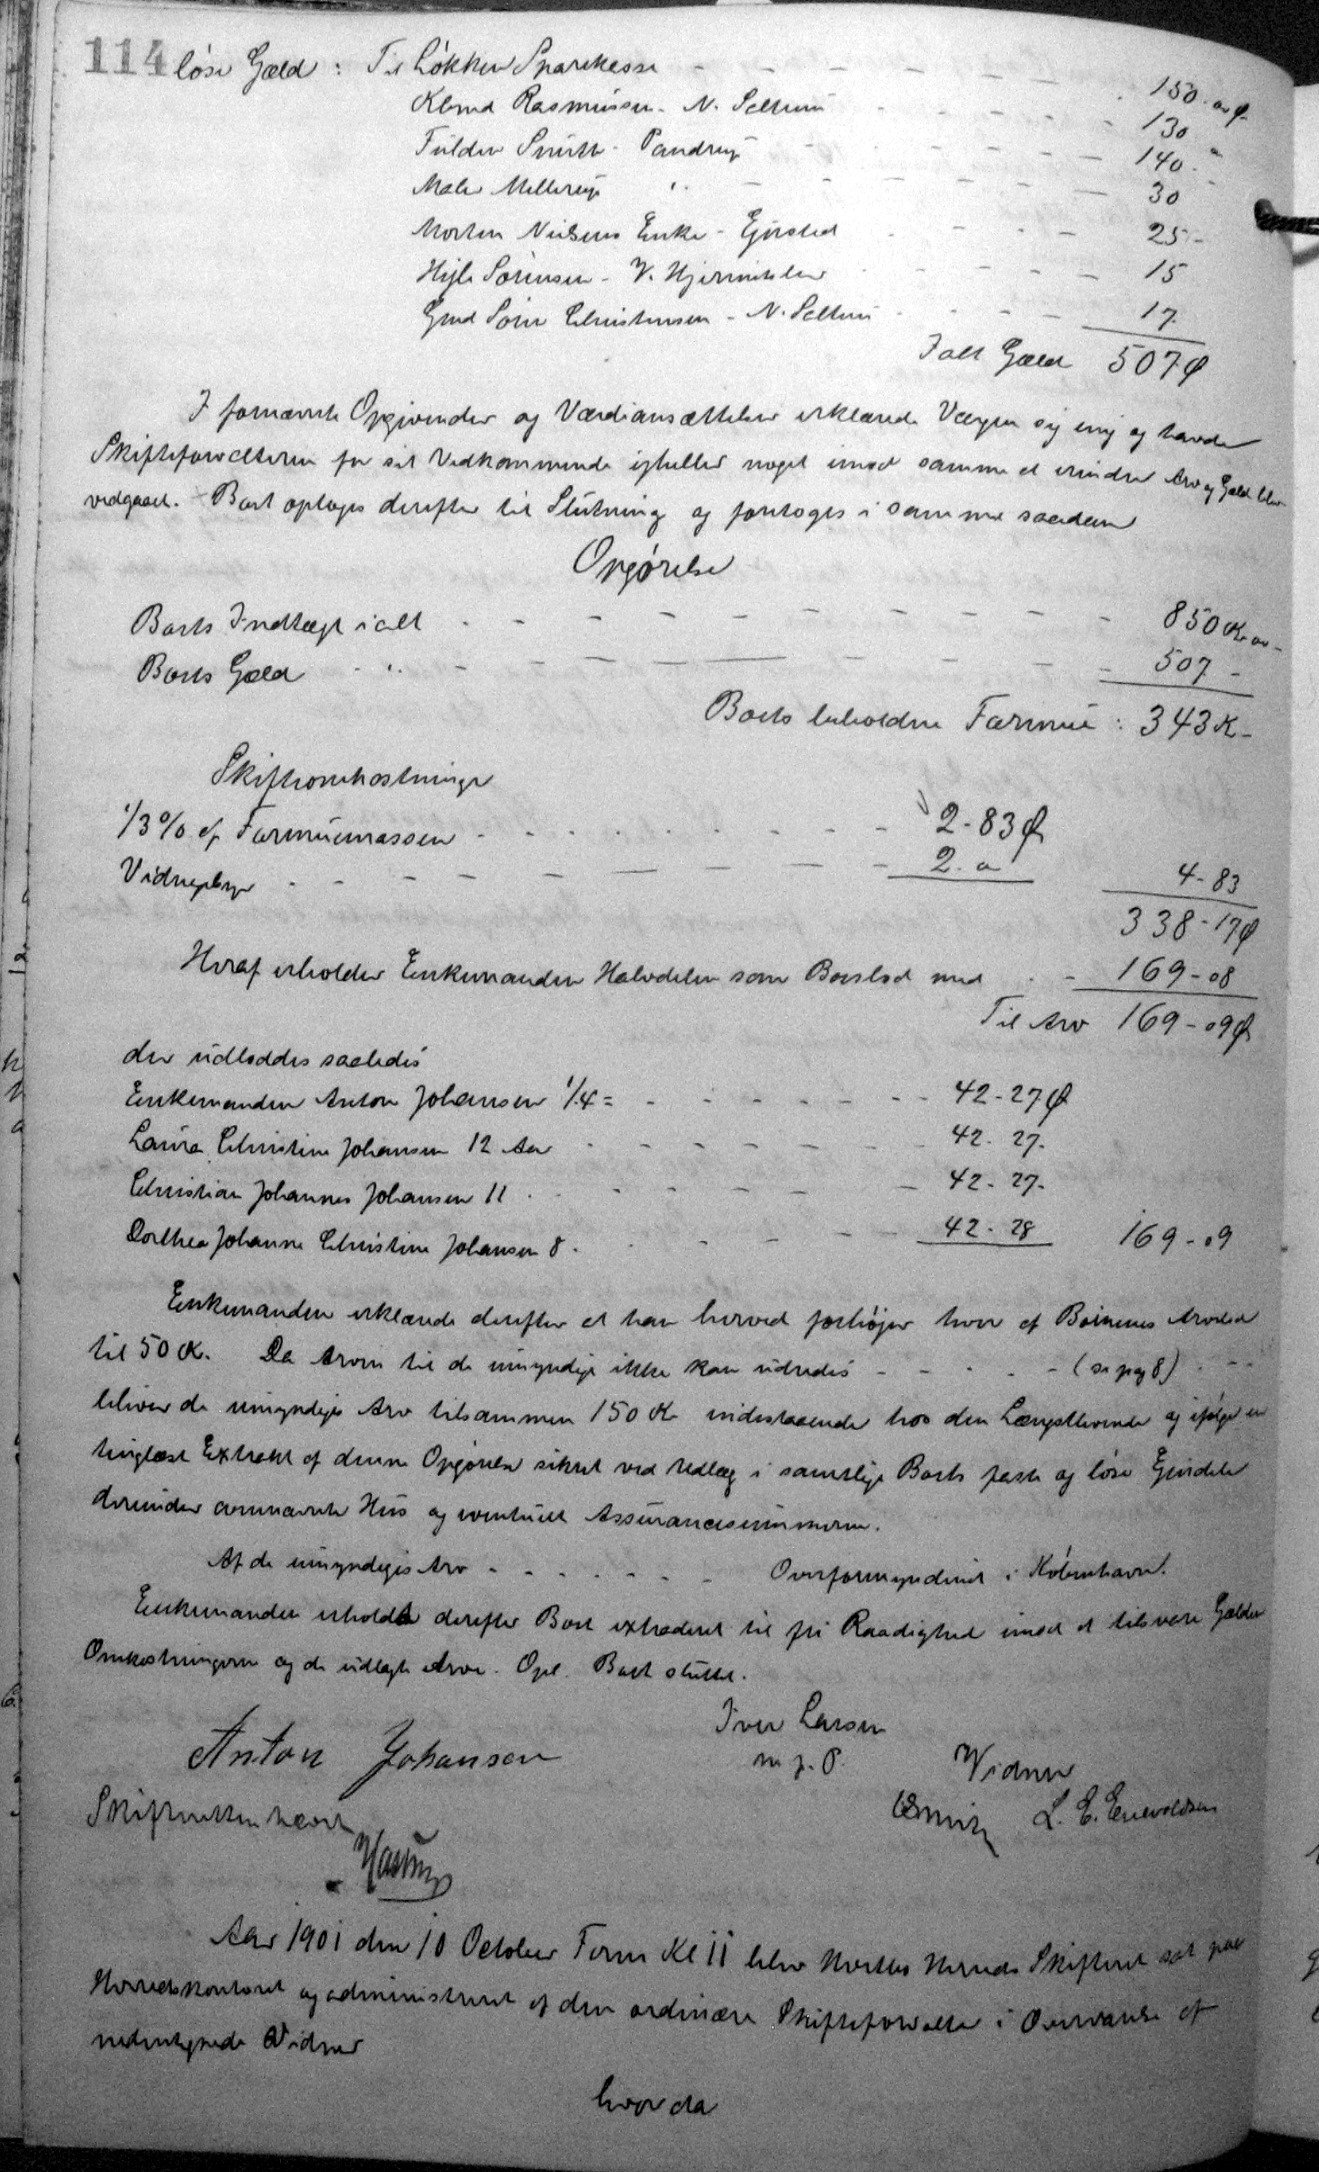 114 løse Gæld: Til Løkken Sparekasse - - - - - - 150 - " Ø
Rasmussen - N. Saltum - - - - - 130
Smith - Pandrup - - - - - 140 -
Maler Mellerup " - - - - - 30
Morten Nielsens Enke - Ejersted - - - - 25 -
Sørensen - V. Hjermitslev - - - - 15
Gmd Søren Christensen - N. Saltum - - - - 17.
Ialt Gæld 507 Ø
I fornævnte Opgivender og Værdiansættelser erklærede Værgen sig enig og havde
Skifteforvalteren for sit Vedkommende ejheller noget imod samme at erindre Arv og Gæld blev
vedgaaet. - Boet optoges derefter til Slutning og foretoges i samme saadan
Opgørelse
Boets Indtægt ialt - - - - - - - - 850 Kr "
Boets Gæld - " - - - - - - - - 507 -
Boets beholdne Formue : 343 K -
Skifteomkostninger
1/3 % af Formuemassen - - - - - - - - 2 - 83 Ø
Vidnepenge - - - - - - - - 2 . " 4 - 83
338 - 17 Ø
Heraf erholder Enkemanden Halvdelen som Boeslod med - - 169 - 08
Til Arv 169 - 09 Ø
der udloddes saaledes
Enkemanden Anton Johansen 1/4 = - - - - - - - 42 - 27 Ø
Laura Christine Johansen 12 Aar - - - - - - 42 - 27 -
Christian Johannes Johansen 11 - - - - - - 42 - 27 -
Dorthea Johanne Christine Johansen 8 - - - - - - 42 - 28 169 - 09
Enkemanden erklærede derefter at han herved forhøjer hver af Børnenes Arvelod
til 50 K. Da Arven til de umyndige ikke kan udredes - - - - (se pag 8) - - -
bliver de umyndiges Arv tilsammen 150 Kr indestaaende hos den Længstlevende og ifølge en
tinglæst Extrakt af denne Opgørelse sikret ved Udlæg i samtlige Boets faste og løse Ejendele
derunder ommævnte Hus og eventuelt Assurancesummerne.
Af de umyndiges Arv - - - - - - - Overformynderiet i København.
Enkemanden erholdt derefter Boet extraderet til fri Raadighed imod at tilsvare Gælden
Omkostningerne og de udlagte Arve. Opl. Boet sluttet.
Anton Johansen Iver Larsen
m. f. P. Vidner
Skifteretten hævet L. E. Enevoldsen
Aar 1901 den 10 October Form Kl 11 blev Hvetbo Herreds Skifteret sat paa
Herredskontoret og administreret af den ordinære Skifteforvalter i Overværelse af
undertegnede Vidner
hvorda